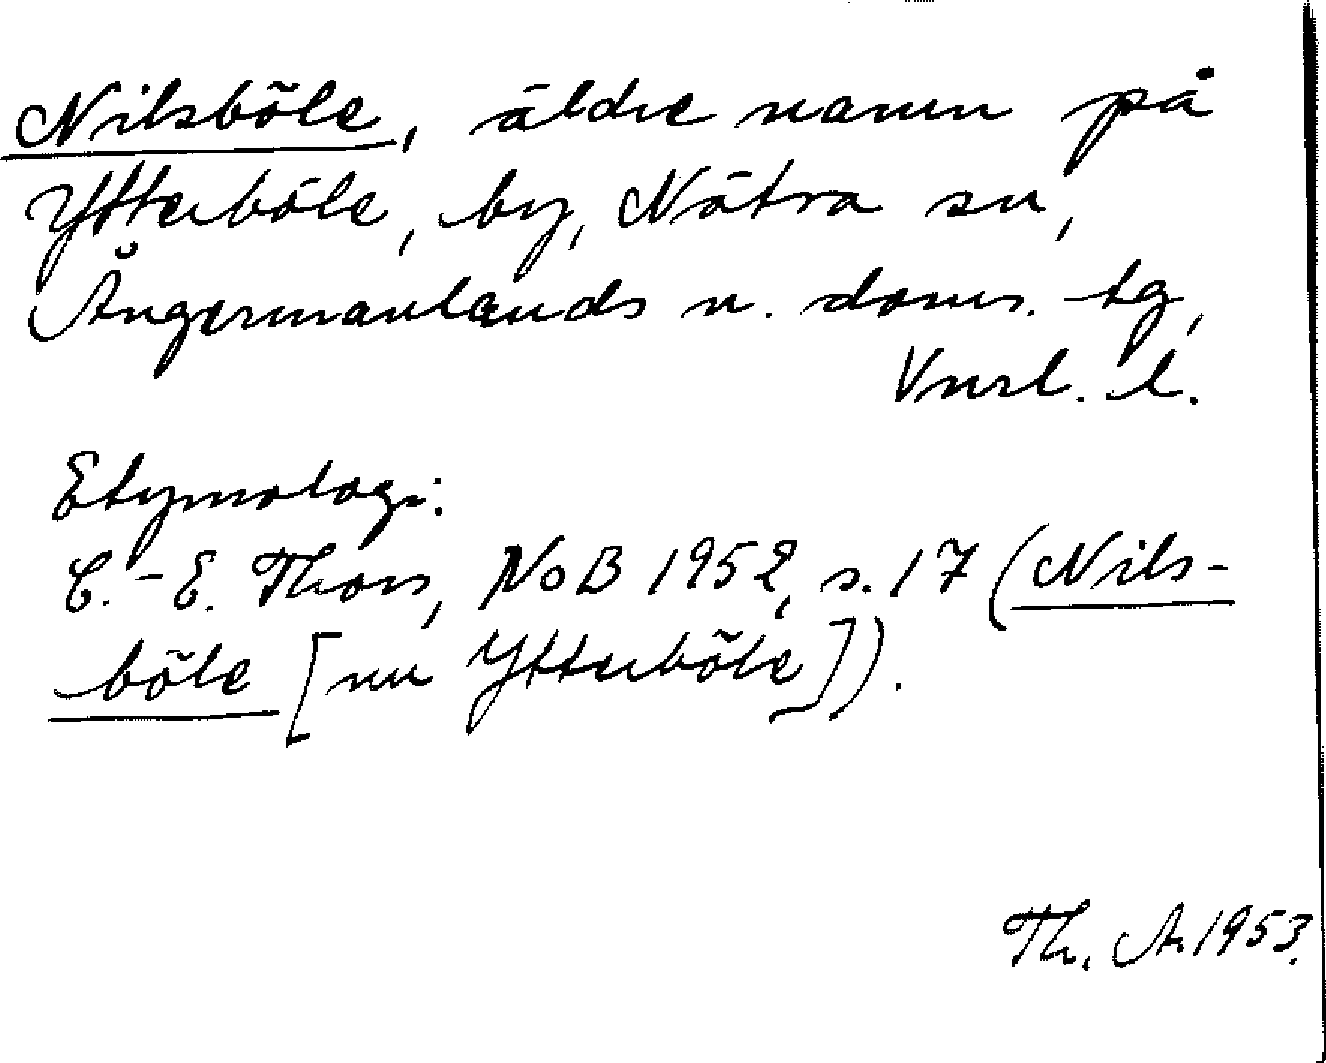 Nilsböle, äldre namn på
Ytterböle, by, Nätra sn,
Ångermanlands n. doms. tg,
Vnrl. l.
Etymologi:
C.-E. Thors, NoB 1952, s. 17 (Nils-
böle [nu Ytterböle]).
Th. A. 1953.